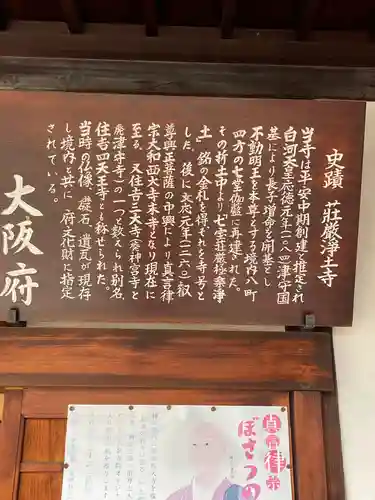 史蹟 荘厳浄土寺
当寺は平安中期創建と推定され
白河天皇応徳元年（一〇八四）津守国
基により長子増命を開基とし
不動明王を本尊とする境内八町
四方の七堂伽藍に再建された。
その折土中より七宝荘厳極楽浄
土」銘の金札を得ぞれを寺号と
した。後に文応元年（一二六〇）叡
尊興正菩薩の中興により真言律
宗大和西大寺末寺となり現在に
至る。又住吉三大寺（奏神宮寺と
廃津守寺）の一つと数えられ別名、
住吉四天王寺とも称せられた。
当時の仏像、礎石、遺瓦が現存
し境内と共に 府文化財に指定
されている。
大阪府
真言律宗
ぼさつの